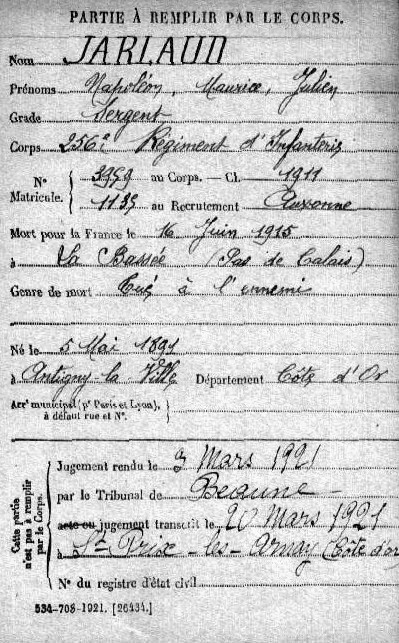 PARTIE À REMPLIR PAR LE CORPS.
Nom JARLAUD
Prénoms Napoléon, Maurice, Julien
Grade Sergent
Corps 256e Régiment d'Infanterie
N° Matricule. { 3959 au Corps. — Cl. 1911
1133 au Recrutement Auxonne
Mort pour la France le 16 Juin 1915
à La Bassée (Pas de Calais)
Genre de mort Tué à l'ennemi
Né le 5 Mai 1891
à Antigny-la Ville Département Côte d'Or
Arrt municipal (pr Paris et Lyon), à défaut rue et N°. }
Cette partie n'est pas à remplir par le Corps.
Jugement rendu le 3 Mars 1921
par le Tribunal de Beaune
acte ou jugement transcrit le 20 Mars 1921
à St Prix-les-Arnay (Côte d'or
N° du registre d'état civil
534-708-1921. [26434.]